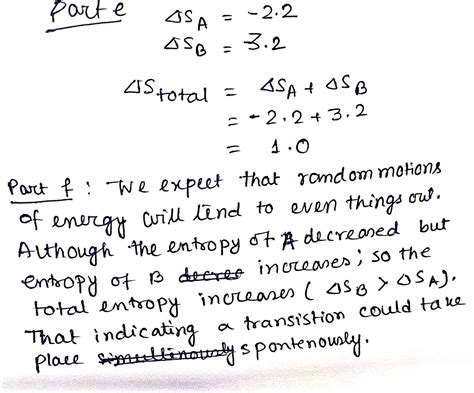 Part e ΔS_A = -2.2
ΔS_B = 3.2
ΔS_total = ΔS_A + ΔS_B
= -2.2 + 3.2
= 1.0
Part f : We expect that random motions
of energy will tend to even things out.
Although the entropy of A decreased but
entropy of B decres increases; so the
total entropy increases ( ΔS_B > ΔS_A).
That indicating a transistion could take
place simultinously spontenously.